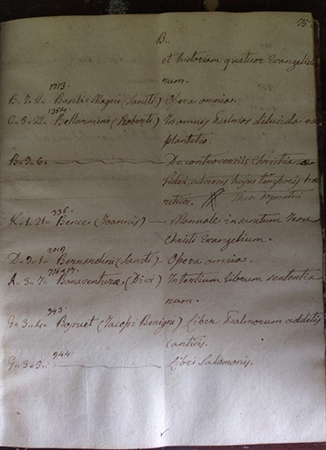 75.
B.
et historiam quatuor Evangelista-
rum.
1213.
B-7-11- Basilii Magni (Sancti) Opera omnia.
1364
C-5-22- Bellarmini (Roberti) In omnes Psalmos dilucida ex-
planatio
B-7-6- De controversiis Christianæ
Fidei, adversus hujus temporis hæ-
reticos.
336.
K-1-21- Bence (Joannis) Manuale in sanctum Jesu
Christi Evangelium.
2019
D-2-1- Bernardini (Sancti) Opera omnia.
A-3-7- Bonaventuræ (Divi) In tertium librum sententia-
rum.
943.
G-3-4- Bossuet (Jacobi Benigni) Liber Psalmorum additis
canticis.
944.
G-3-5- Libri Salomonis.